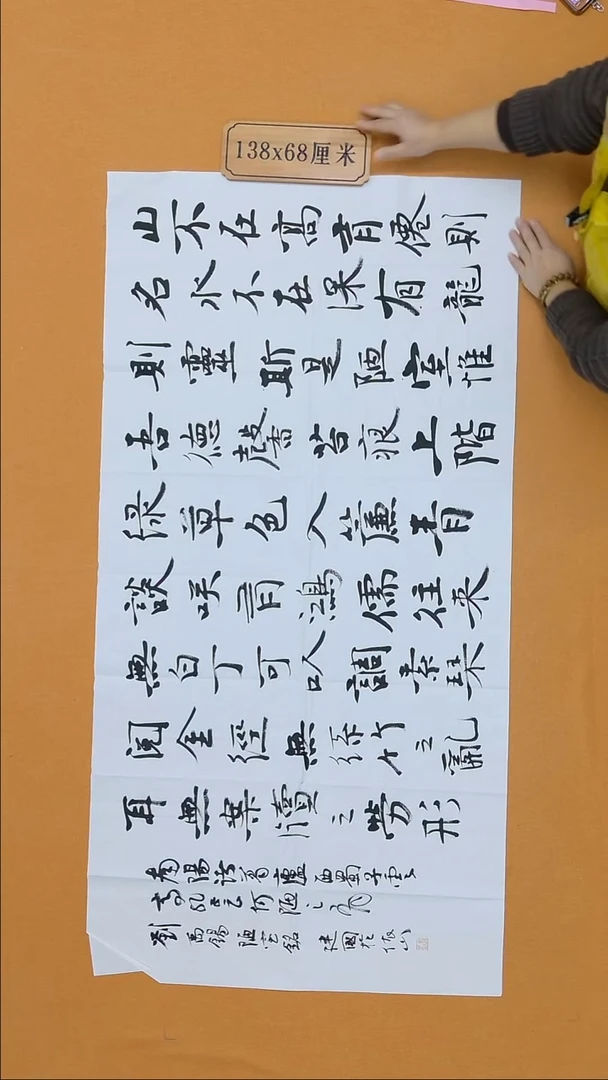 138x68厘米
山不在高有僊則
名水不在深有龍
則靈斯是陋室惟
吾德馨苔痕上階
緑草色入簾青
談咲有鴻儒往來
無白丁可以調素琴
閱金經無絲竹之亂
耳無案牘之勞形
南陽諸葛廬西蜀子雲
亭孔子云何陋之有
劉禹錫陋室銘 建國於